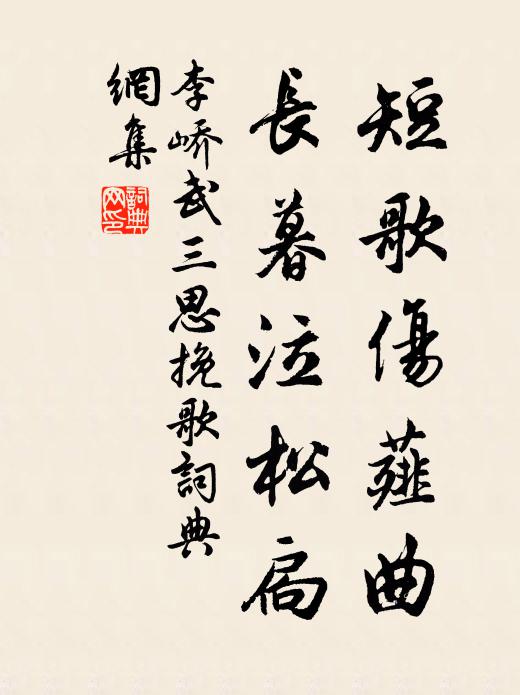 短歌傷薤曲
長暮泣松扃
李嶠武三思挽歌詞典
網集
詞典網印